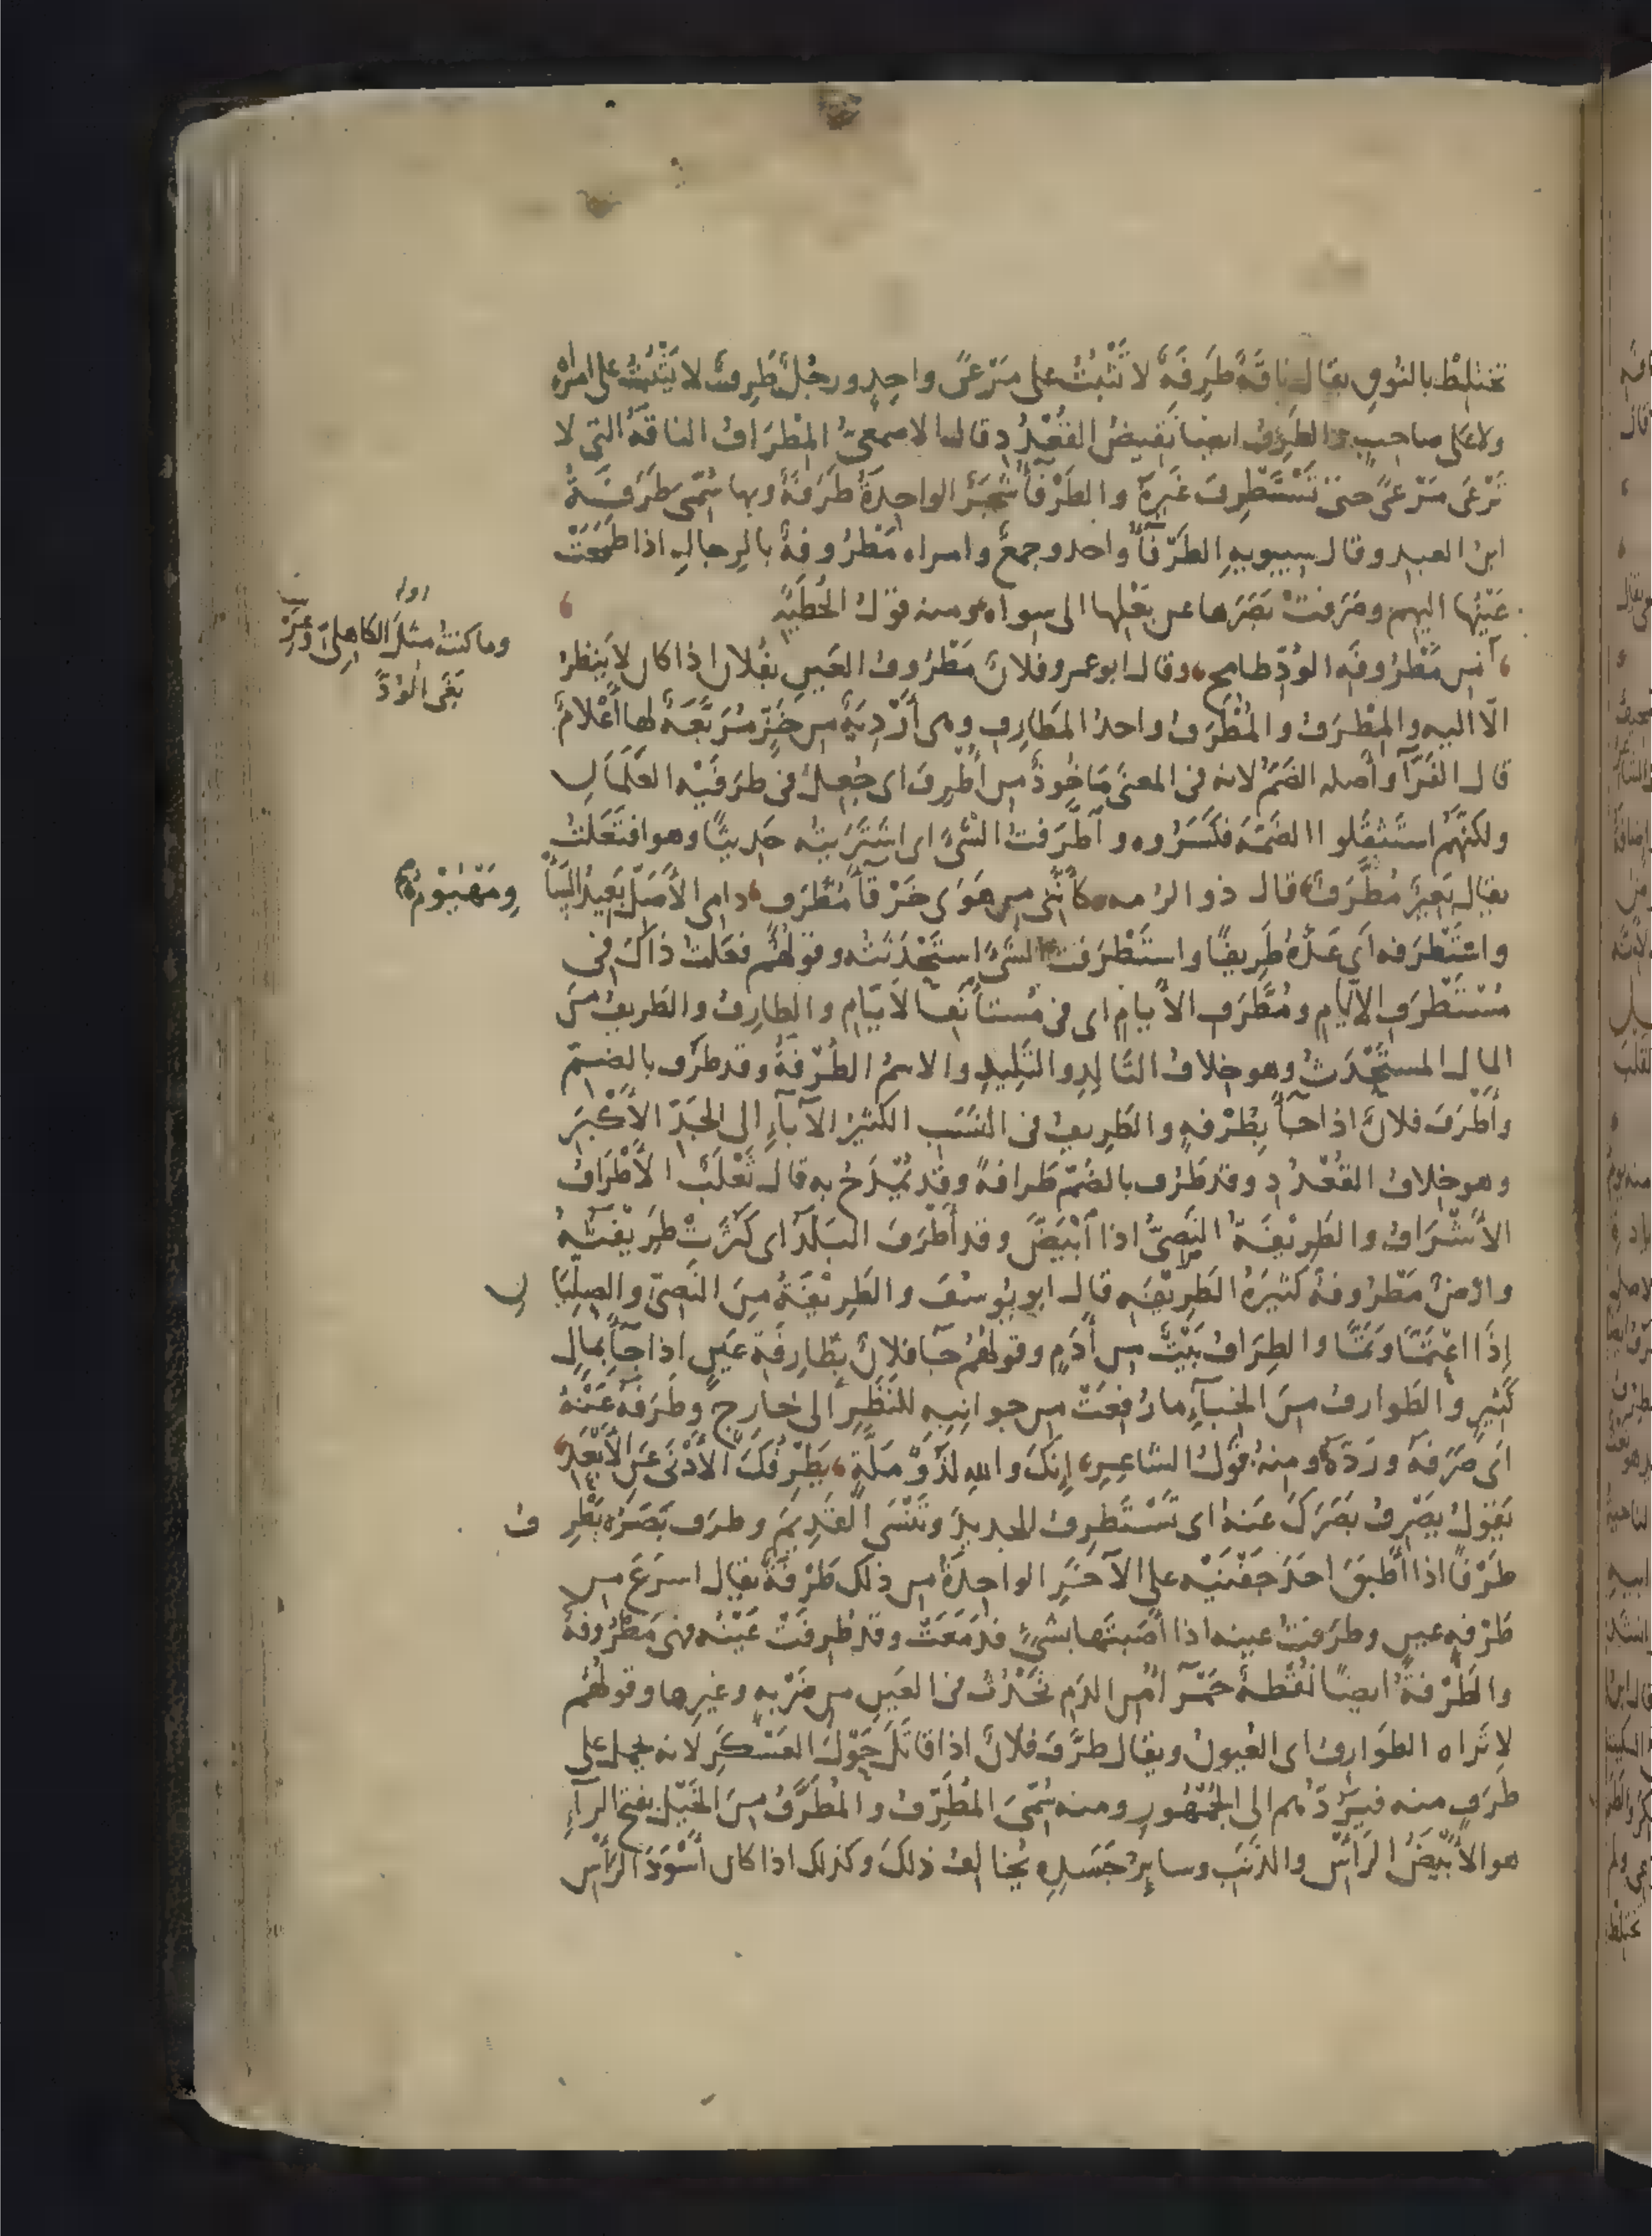 تختلِطْ بالنُوقِ يقال ناقَةٌ طَرِفَةٌ لا تَثْبُتُ على مَرْعًى واحِدٍ ورجُلٌ طَرِفٌ لا يَثْبُتُ على امرْأةٍ
ولا على صاحبٍ والطَرِفُ ايضا نَقِيضُ القُعْدُدِ وقال الاصمعىُّ المِطْرَافُ الناقَةُ التى لا
تَرْعَى مَرْعًى حتى تَسْتَطْرِفَ غَيرَهُ والطَرْفَآءُ شَجَرٌ الواحِدَةُ طَرَفَةٌ وبها سُمِّى طَرَفَةُ
ابنُ العبدِ وقال سيبويهِ الطَرْفَآءُ واحد وجمعٌ وامراه مَطْرُوفةٌ بالرِجالِ اذا طَمَحَتْ
عَيْنُها اليهم وصَرَفتْ بَصَرَها عن بَعْلِها الى سِواه ومنه قوْلُ الحُطَيْئَةِ
وما كنتُ مثلَ الكاهِلىِّ وعِرْسِهِ
بَغَى الوُدَّ
مِن مَطْرُوفَةِ الوُدِّ طامحِ وقال ابو عمرو فلانٌ مَطْرُوفُ العَينِ بفُلانٍ اذا كان لا يَنظرُ
الّا اليه والمِطْرَفُ والمُطْرَفُ واحدُ المَطَارِفِ وهى أرْدِيَةٌ من خَزٍّ مُرَبَّعَةٌ لها أعْلامٌ
قال الفَرّآءُ وأصله الضَمُّ لانه فى المعنى مَاخُوذٌ من أُطْرِفَ اى جُعِلَ فى طَرَفَيْه العَلَمَانِ
ولكنَّهُم استَثْقَلُوا الضَمّةَ فكَسَرُوه واطَّرَفتُ الشَىْءَ اى اشتَرَيتُه حَدِيثًا وهو افتَعَلتُ
يقال بَعِيرٌ مُطَّرَفٌ قال ذو الرُمه كأنَّنى من هَوَى خَرْقَآءَ مُطَّرَفٌ دامى الأظَلِّ بَعِيدُ السَأْوِ مَهْيُومُ
واسْتَطْرَفه اى عَدَّهُ طَرِيفًا واستَطْرَفتُ الشَىْءَ استَحْدَثْتُه وقولُهُم فعَلتُ ذاكَ فى
مُسْتَطْرَفِ الايّامِ ومُطَّرَفِ الأيامِ اى فى مُستَأنَفِ الأيّامِ والطارِفُ والطَريفُ مِنَ
المال المستَحْدَثُ وهو خِلافُ التَالِدِ والتَلِيدِ والاسمُ الطُرْفَةُ وقد طَرُف بالضمّ
وأطْرَفَ فلانٌ اذا جَآءَ بِطُرْفةٍ والطَرِيفُ فى النَسَبِ الكثيرُ الآبآءِ الى الجَدِّ الأكْبَرِ
وهو خِلافُ القُعْدُدِ وقد طَرُف بالضَمّ طَرافةً وقد يُمْدَحُ به قال ثَعْلَبٌ الأطْرَافُ
الأشْرَافُ والطَرِيفَةُ النَصِىُّ اذا ابْيَضَّ وقد أطْرَفَ البَلَدُ اى كَثُرَتْ طَرِيفَتُهُ
وارضٌ مَطْرُوفةٌ كثيرَةُ الطَرِيفَه قال ابو يُوسُفَ والطَرِيفَةُ مِنَ النَصِىِّ والصِلِّيَانِ
إذا اعْتَمَّا وتَمَّا والطِرَافُ بَيْتٌ من أدَمٍ وقولهُم جآ فلانٌ بِطَارِفَةِ عَينٍ اذا جآءَ بمالٍ
كَثِيرٍ والطَوارفُ مِنَ الخِبآءِ ما رُفِعَتْ من جوانِبِهِ للنَظَرِ الى خارِجٍ وطَرَفَهُ عَنْهُ
اى صَرَفَهُ ورَدَّهُ ومنهُ قَوْلُ الشاعِرِ إنّكَ واللهِ لَذُو مَلَّةٍ يَطْرِفُكَ الأدْنَى عَنِ الأبْعَدِ
يَقُولُ يَصْرِفُ بَصَرَكَ عَنهُ اى تَسْتَطرِفُ الجديدَ وتَنْسَى القَدِيمَ وطرَف بَصَرَه يَطْرِفُ
طَرْفًا اذا أطبَقَ احَدَ جَفْنَيْه على الآخَرِ الواحِدَةُ من ذلك طَرْفَةٌ يقال اسرَعُ من
طَرْفةِ عينٍ وطرَفتُ عينه اذا أصَبتَها بشىءٍ فدَمَعَتْ وقد طُرِفَتْ عَيْنُه فهى مَطْرُوفةٌ
والطَرْفةُ ايضًا نُقْطةٌ حَمْرآءُ من الدَمِ تَحْدُثُ فى العَينِ من ضَرْبةٍ وغيرِها وقولُهُم
لا تَراه الطَوَارِفُ اى العُيونُ ويقال طَرَّفَ فلانٌ اذا قاتَلَ حَوْلَ العَسْكَرِ لانه يحمل على
طَرَفٍ منه فيَرُدُّهم الى الجُمْهُورِ ومنه سُمّىَ المُطَرِّفُ والمُطَرَّفُ مِنَ الخَيْلِ بفتح الرآءِ
هو الأبْيَضُ الرَأسِ والذَنَبِ وسايِرُ جَسَدِهِ يُخالِفُ ذلكَ وكذلك اذا كان أسْوَدَ الرَأسِ